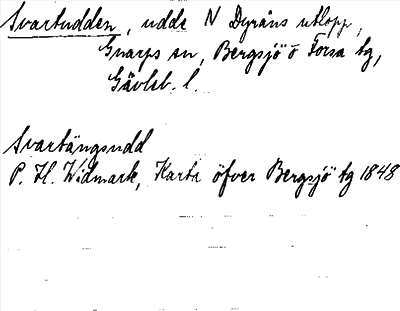 Svartudden, udde N Dyråns utlopp,
Gnarps sn, Bergsjö o Forsa tg,
Gävleb. l.
Svartängsudd
P. H. Widmark, Karta öfver Bergsjö tg 1848